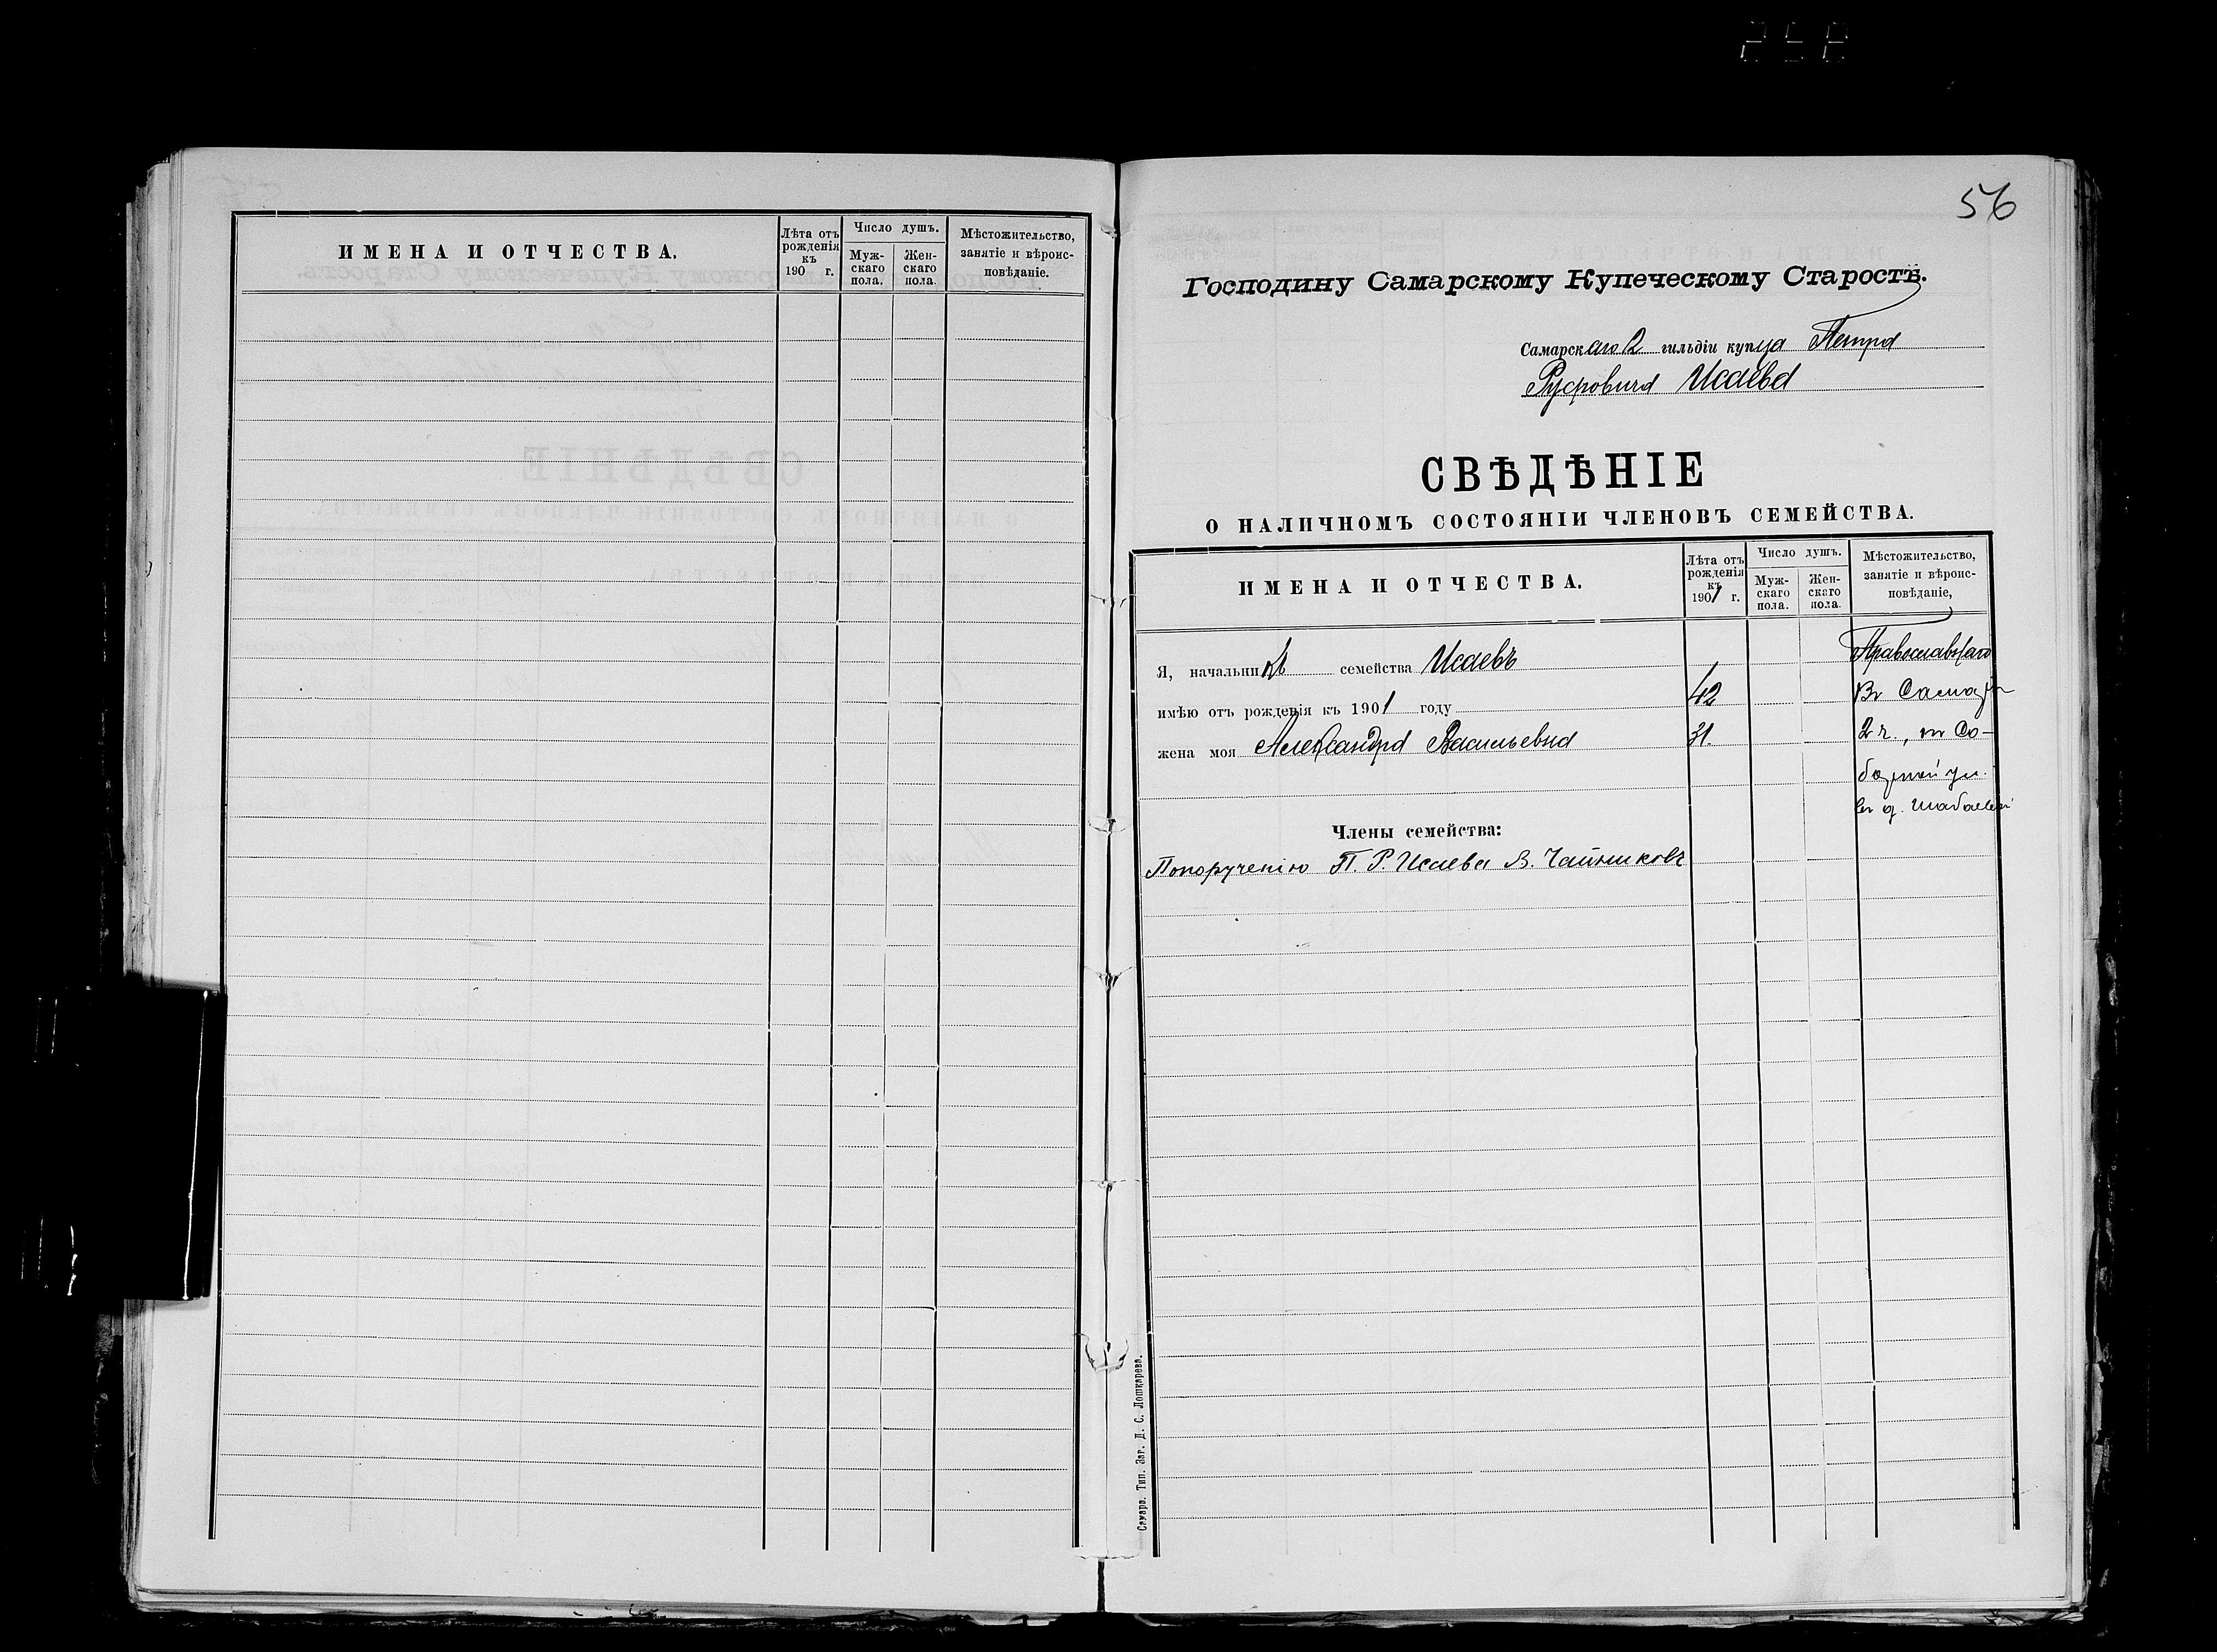 ИМЕНА И ОТЧЕСТВА.
Лѣта отъ рожденія къ 190 г.
Число душъ.
Муж-скаго пола.
Жен-скаго пола.
Мѣстожительство, занятіе и вѣроис-повѣданіе.
56
Господину Самарскому Купеческому Старостѣ.
Самарскаго 2 гильдіи купца Петра
Исаева
СВѢДѢНІЕ
О НАЛИЧНОМЪ СОСТОЯНІИ ЧЛЕНОВЪ СЕМЕЙСТВА.
ИМЕНА И ОТЧЕСТВА.
Лѣта отъ рожденія къ 1901 г.
Число душъ.
Муж-скаго пола.
Жен-скаго пола.
Мѣстожительство, занятіе и вѣроис-повѣданіе,
Я, начальникъ семейства Исаевъ Православнаго
имѣю отъ рожденія къ 1901 году 42 Въ Самарѣ
жена моя Александра Васильевна 31. 2 ч., по Со-
борной ул.
въ д. Шабаевой
Члены семейства:
Попорученію П. Р. Исаева В. Чайниковъ
Самара. Тип. Заг. Д. С. Лошкарева.